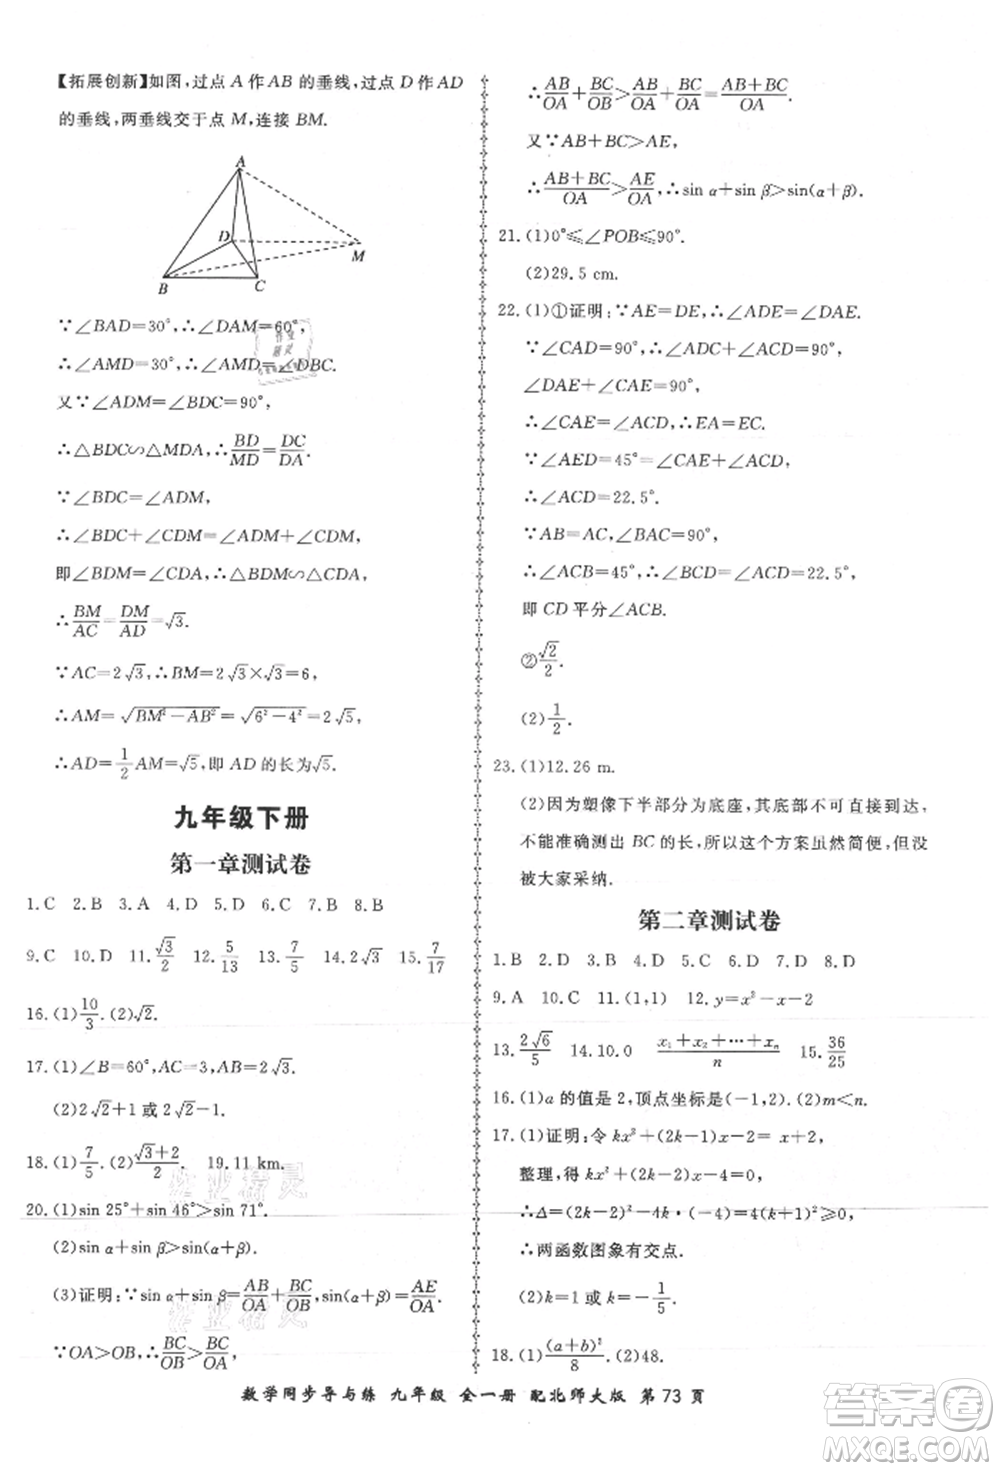 【拓展创新】如图,过点 A 作 AB 的垂线,过点 D 作 AD
的垂线,两垂线交于点 M,连接 BM.
A
D
M
B
C
∵∠BAD=30°,∴∠DAM=60°,
∴∠AMD=30°,∴∠AMD=∠DBC.
又∵∠ADM=∠BDC=90°,
∴△BDC∽△MDA,∴BD/MD=DC/DA.
∵∠BDC=∠ADM,
∴∠BDC+∠CDM=∠ADM+∠CDM,
即∠BDM=∠CDA,∴△BDM∽△CDA,
∴BM/AC=DM/AD=√3.
∵AC=2√3,∴BM=2√3×√3=6,
∴AM=√(BM²-AB²)=√(6²-4²)=2√5,
∴AD=1/2AM=√5,即 AD 的长为√5.
九年级下册
第一章测试卷
1.C 2.B 3.A 4.D 5.D 6.C 7.B 8.B
9.C 10.D 11.√3/2 12.5/13 13.7/5 14.2√3 15.7/17
16.(1)10/3.(2)√2.
17.(1)∠B=60°,AC=3,AB=2√3.
(2)2√2+1 或 2√2-1.
18.(1)7/5.(2)(√3+2)/2. 19.11 km.
20.(1)sin 25°+sin 46°>sin 71°.
(2)sin α+sin β>sin(α+β).
(3)证明:∵sin α+sin β=AB/OA+BC/OB,sin(α+β)=AE/OA,
∵OA>OB,∴BC/OB>BC/OA,
∴AB/OA+BC/OB>AB/OA+BC/OA=(AB+BC)/OA.
又∵AB+BC>AE,
∴(AB+BC)/OA>AE/OA,∴sin α+sin β>sin(α+β).
21.(1)0°≤∠POB≤90°.
(2)29.5 cm.
22.(1)①证明:∵AE=DE,∴∠ADE=∠DAE.
∵∠CAD=90°,∴∠ADC+∠ACD=90°,
∠DAE+∠CAE=90°,
∴∠CAE=∠ACD,∴EA=EC.
∵∠AED=45°=∠CAE+∠ACD,
∴∠ACD=22.5°.
∵AB=AC,∠BAC=90°,
∴∠ACB=45°,∴∠BCD=∠ACD=22.5°,
即 CD 平分∠ACB.
②√2/2.
(2)1/2.
23.(1)12.26 m.
(2)因为塑像下半部分为底座,其底部不可直接到达,
不能准确测出 BC 的长,所以这个方案虽然简单但没
被大家采纳.
第二章测试卷
1.B 2.D 3.B 4.C 5.A 6.C 7.D 8.D
9.A 10.C 11.(1,1) 12.y=x²-x-2
13.2√6/5 14.10.0 (x₁+x₂+…+xₙ)/n 15.36/25
16.(1)a 的值是 2,顶点坐标是(-1,2).(2)m<n.
17.(1)证明:令 kx²+(2k-1)x-2=x-2+k,
整理,得 kx²+(2k-2)x-k=0,
∴Δ=(2k-2)²-4k·(-k)=4(k-1)²+4k²≥0,
∴两函数图象有交点.
(2)k=1 或 k=-1/5.
18.(1)(a+b)²/8.(2)48.
数学同步导与练 九年级 全一册 配北师大版 第73页
答案圈
MXQE.COM